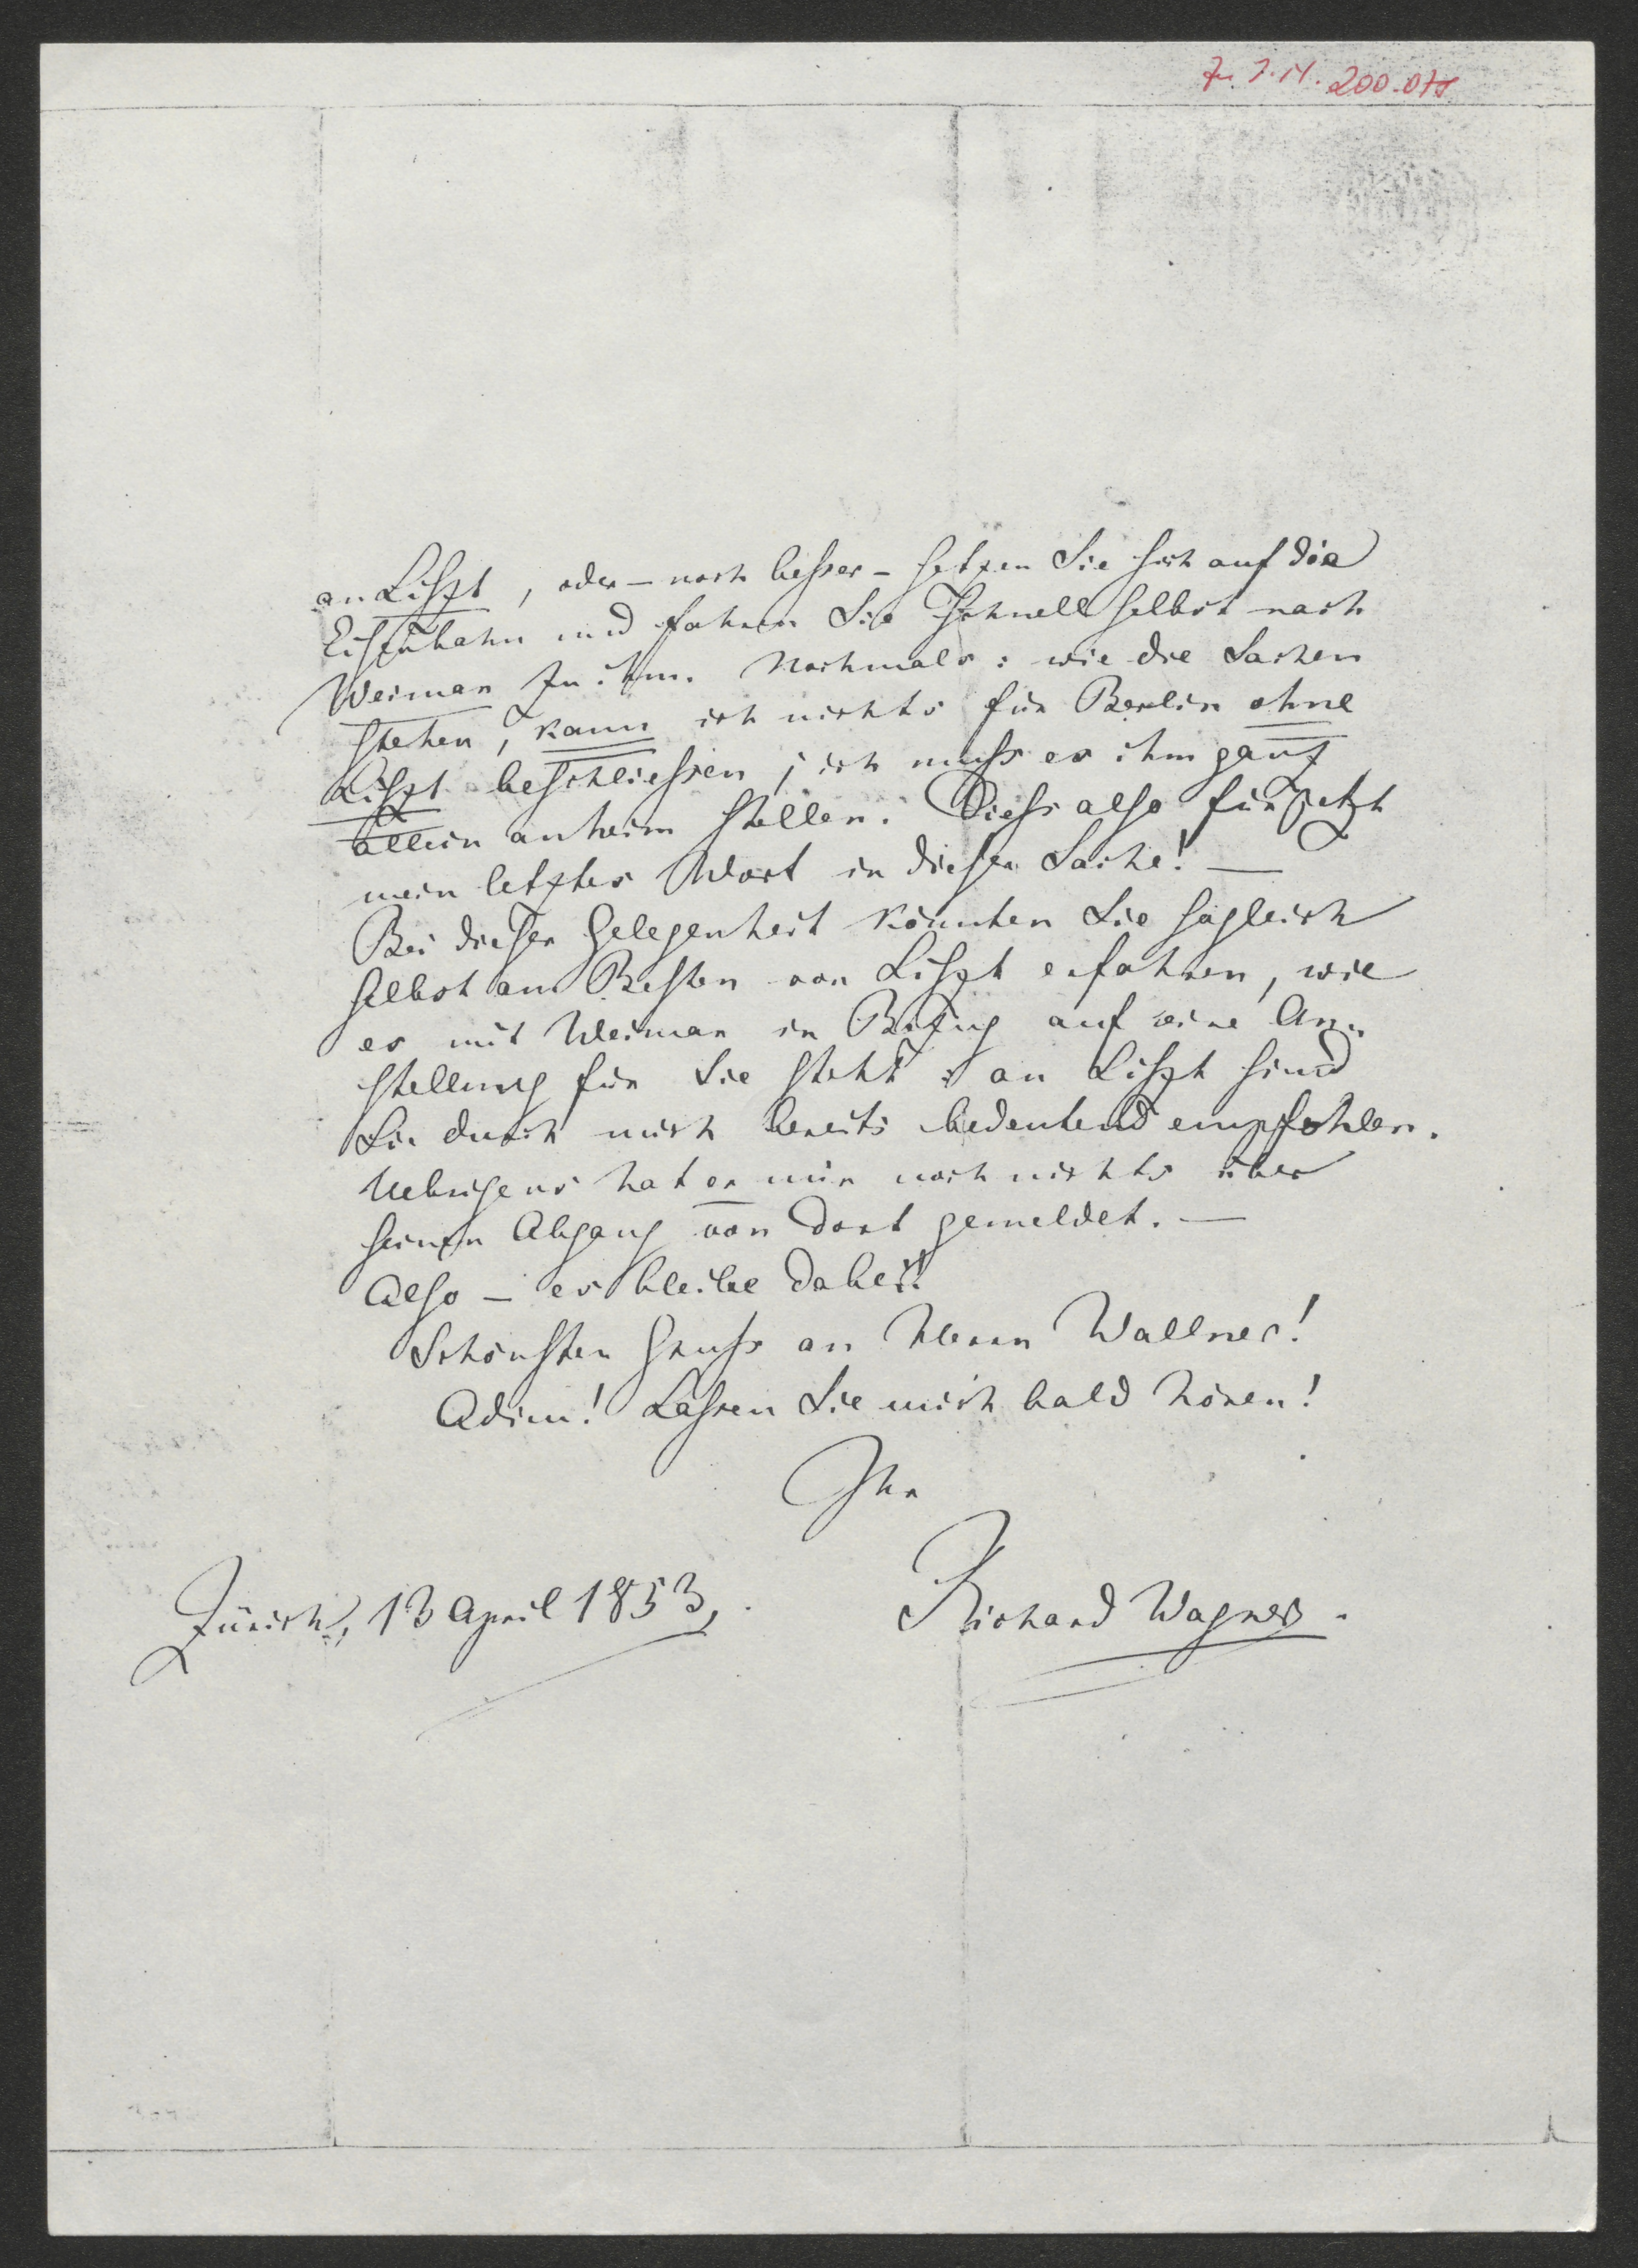 an Liszt, oder – noch besser – setzen Sie sich auf die
Eisenbahn und fahren Sie schnell selbst nach
Weimar zu ihm. Nochmals: wie die Sachen
stehen, kann ich nichts für Berlin ohne
Liszt beschliessen; ich muss es ihm ganz
allein anheim stellen. Diess also für jetzt
mein letztes Wort in dieser Sache! —
Bei dieser Gelegenheit könnten Sie sogleich
selbst am Besten von Liszt erfahren, wie
es mit Weimar in Bezug auf eine An-
stellung für Sie steht: an Liszt sind
Sie durch mich bereits bedeutend empfohlen.
Uebrigens hat er mir noch nichts über
seinen Abgang von dort gemeldet. —
Also – es bleibe dabei!
Schönsten Gruss an Herrn Wallner!
Adieu! Lassen Sie mich bald hören!
Ihr
Richard Wagner.
Zürich, 13 April 1853,